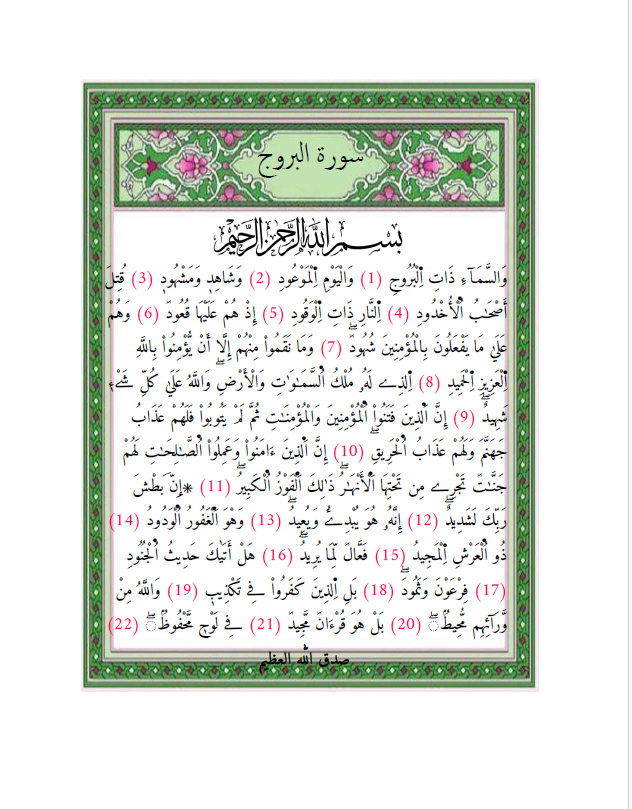 سورة البروج
بِسْمِ اللَّهِ الرَّحْمَنِ الرَّحِيمِ
وَالسَّمَآءِ ذَاتِ اِ۬لْبُرُوجِ (1) وَالْيَوْمِ اِ۬لْمَوْعُودِ (2) وَشَاهِدٖ وَمَشْهُودٖ (3) قُتِلَ
أَصْحَٰبُ اُ۬لُاخْدُودِ (4) اِ۬لنَّارِ ذَاتِ اِ۬لْوَقُودِ (5) إِذْ هُمْ عَلَيْهَا قُعُودٞ (6) وَهُمْ
عَلَىٰ مَا يَفْعَلُونَ بِالْمُؤْمِنِينَ شُهُودٞۖ (7) وَمَا نَقَمُواْ مِنْهُمْ إِلَّا أَنْ يُّؤْمِنُواْ بِاللَّهِ
اِ۬لْعَزِيزِ اِ۬لْحَمِيدِ (8) اِ۬لذِے لَهُۥ مُلْكُ اُ۬لسَّمَٰوَٰتِ وَالْأَرْضِۖ وَاللَّهُ عَلَىٰ كُلِّ شَےْءٖ
شَهِيدٌۖ (9) إِنَّ اَ۬لذِينَ فَتَنُواْ اُ۬لْمُؤْمِنِينَ وَالْمُؤْمِنَٰتِ ثُمَّ لَمْ يَتُوبُواْ فَلَهُمْ عَذَابُ
جَهَنَّمَ وَلَهُمْ عَذَابُ اُ۬لْحَرِيقِۖ (10) إِنَّ اَ۬لذِينَ ءَامَنُواْ وَعَمِلُواْ اُ۬لصَّٰلِحَٰتِ لَهُمْ
جَنَّٰتٞ تَجْرِے مِن تَحْتِهَا اَ۬لْأَنْهَٰرُۖ ذَٰلِكَ اَ۬لْفَوْزُ اُ۬لْكَبِيرُۖ (11) ۞إِنَّ بَطْشَ
رَبِّكَ لَشَدِيدٌۖ (12) إِنَّهُۥ هُوَ يُبْدِئُ وَيُعِيدُۖ (13) وَهُوَ اَ۬لْغَفُورُ اُ۬لْوَدُودُ (14)
ذُو اُ۬لْعَرْشِ اِ۬لْمَجِيدُ (15) فَعَّالٞ لِّمَا يُرِيدُۖ (16) هَلْ أَتَىٰكَ حَدِيثُ اُ۬لْجُنُودِ
(17) فِرْعَوْنَ وَثَمُودَۖ (18) بَلِ اِ۬لذِينَ كَفَرُواْ فِے تَكْذِيبٖ (19) وَاللَّهُ مِنْ
وَّرَآئِهِم مُّحِيطٌۖ (20) بَلْ هُوَ قُرْءَانٞ مَّجِيدٞ (21) فِے لَوْحٖ مَّحْفُوظٌۖ (22)
صدق الله العظيم